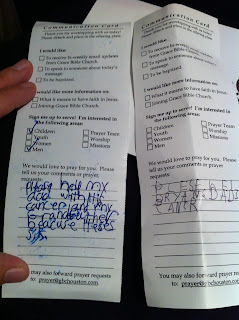 Communication Card
Thank you for worshipping with us today!
Please check and place in the offering plate.
I would like:
To receive bi-weekly email updates
from Grace Bible Church
To speak to someone about today's
message
To be baptized.
I would like more information on:
What it means to have faith in Jesus.
Joining Grace Bible Church
Sign me up to serve! I'm interested in
the following areas:
Children
Youth
Women
Men
Prayer Team
Worship
Missions
We would love to pray for you! Please
tell us your comments or prayer
requests.
Pray help my
dad with his
cancer and my
is
because
You may also forward prayer requests
to: prayer@gbchouston
Communication Card
I would like:
To receive bi-weekly email updates
from Grace Bible Church
To speak to someone about today's
message
To be baptized.
I would like more information on:
What it means to have faith in Jesus.
Joining Grace Bible Church
Sign me up to serve! I'm interested in
the following areas:
Children
Youth
Women
Men
Prayer Team
Worship
Missions
We would love to pray for you! Please
tell us your comments or prayer
requests.
DAD
CANCR
You may also forward prayer requests
to: prayer@gbchouston